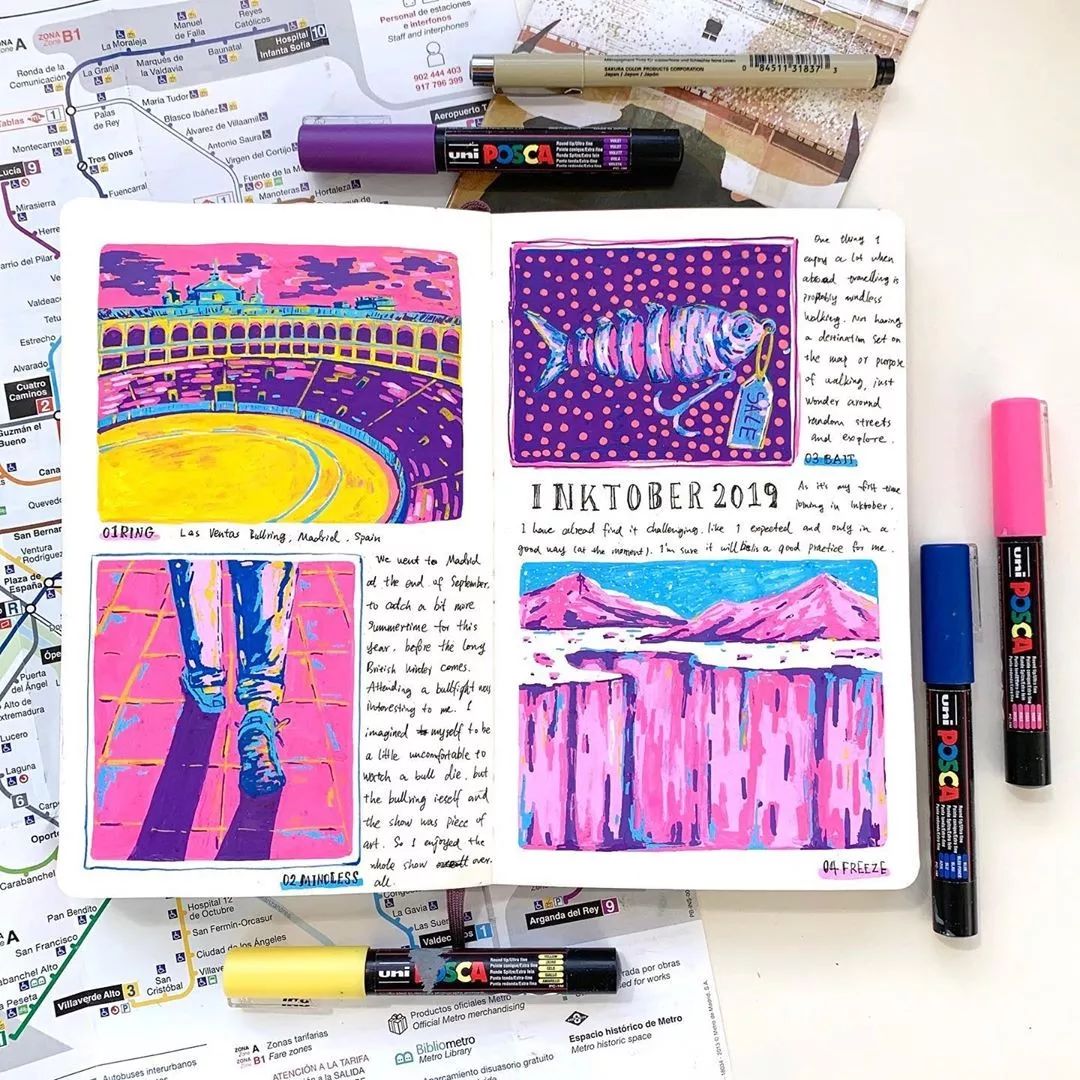 ZONA A
Zone
ZONA B1
Zone
La Moraleja
Manuel
de Falla
Reyes
Católicos
Baunatal
Hospital
Infanta Sofía
10
Ronda de la
Comunicación
La Granja
Marqués de
la Valdavia
Las Tablas
1
Palas
de Rey
María Tudor
Blasco Ibáñez
Álvarez de Villaamil
Antonio Saura
Virgen del Cortijo
Fuente de la Mora
Montecarmelo
Tres Olivos
Fuencarral
9
Mirasierra
Manoteras
Hortaleza
Aeropuerto T
Personal de estaciones
e interfonos
Staff and interphones
902 444 403
917 796 399
SAKURA COLOR PRODUCTS CORPORATION
Japan / Japon / Japón
0 84511 31837 3
uni POSCA
Round tip/Ultra-fine
VIOLET
PC-1M
Barrio del Pilar
Estrecho
Alvarado
Cuatro
Caminos
2
Guzmán el
Bueno
Quevedo
San Bernardo
Ventura
Rodríguez
Plaza de
España
R
Puerta
del Ángel
Alto de
Extremadura
Lucero
Laguna
6
Carpetana
Oporto
Carabanchel
01 RING
Las Ventas Bullring, Madrid, Spain
We went to Madrid
at the end of September,
to catch a bit more
summertime for this
year, before the long
British winter comes.
Attending a bullfight was
interesting to me. I
imagined myself to be
a little uncomfortable to
watch a bull die, but
the bullring itself and
the show was piece of
art. So I enjoyed the
whole show over
all.
02 MINDLESS
SALE
One thing I
enjoy a lot when
abroad travelling is
probably mindless
walking. Not having
a destination set on
the map or purpose
of walking, just
wonder around
random streets
and explore.
03 BAIT
INKTOBER 2019
As it's my first time
joining in Inktober.
I have alread find it challenging, like I expected and only in a
good way (at the moment). I'm sure it will be a good practice for me.
04 FREEZE
uni POSCA
uni POSCA
A
Pan Bendito
San Francisco
Carabanchel Alto
La Peseta
Hospital 12
de Octubre
San Fermín-Orcasur
Ciudad de los Ángeles
Villaverde Alto 3
San
Cristóbal
La Gavia
Las Suertes
Valdecarros 1
Arganda del Rey 9
uni POSCA
Round tip/Ultra-fine
YELLOW
JAUNE
GELB
GIALLO
AMARILLO
PC-1M
Productos oficiales Metro
Official Metro merchandising
Bibliometro
Metro Library
Espacio histórico de Metro
Metro historic space
ZONA A
ZONA B1
Zonas tarifarias
Fare zones
ATENCIÓN A LA TARIFA
Autobuses interurbanos
Aparcamiento disuasorio gratuito